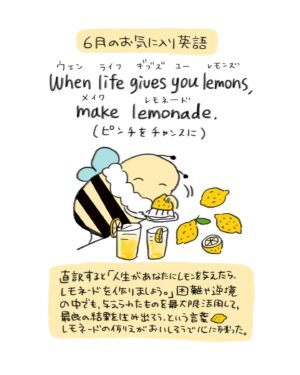 6月のお気に入り英語
ウェン ライフ ギブズ ユー レモンズ
When life gives you lemons,
メイク レモネード
make lemonade.
(ピンチをチャンスに)
直訳すると「人生があなたにレモンを与えたら、
レモネードを作りましょう。」困難や逆境
の中でも、与えられたものを最大限活用して、
最良の結果を生み出そう、という言葉
レモネードの例えがおいしそうで心に残った。